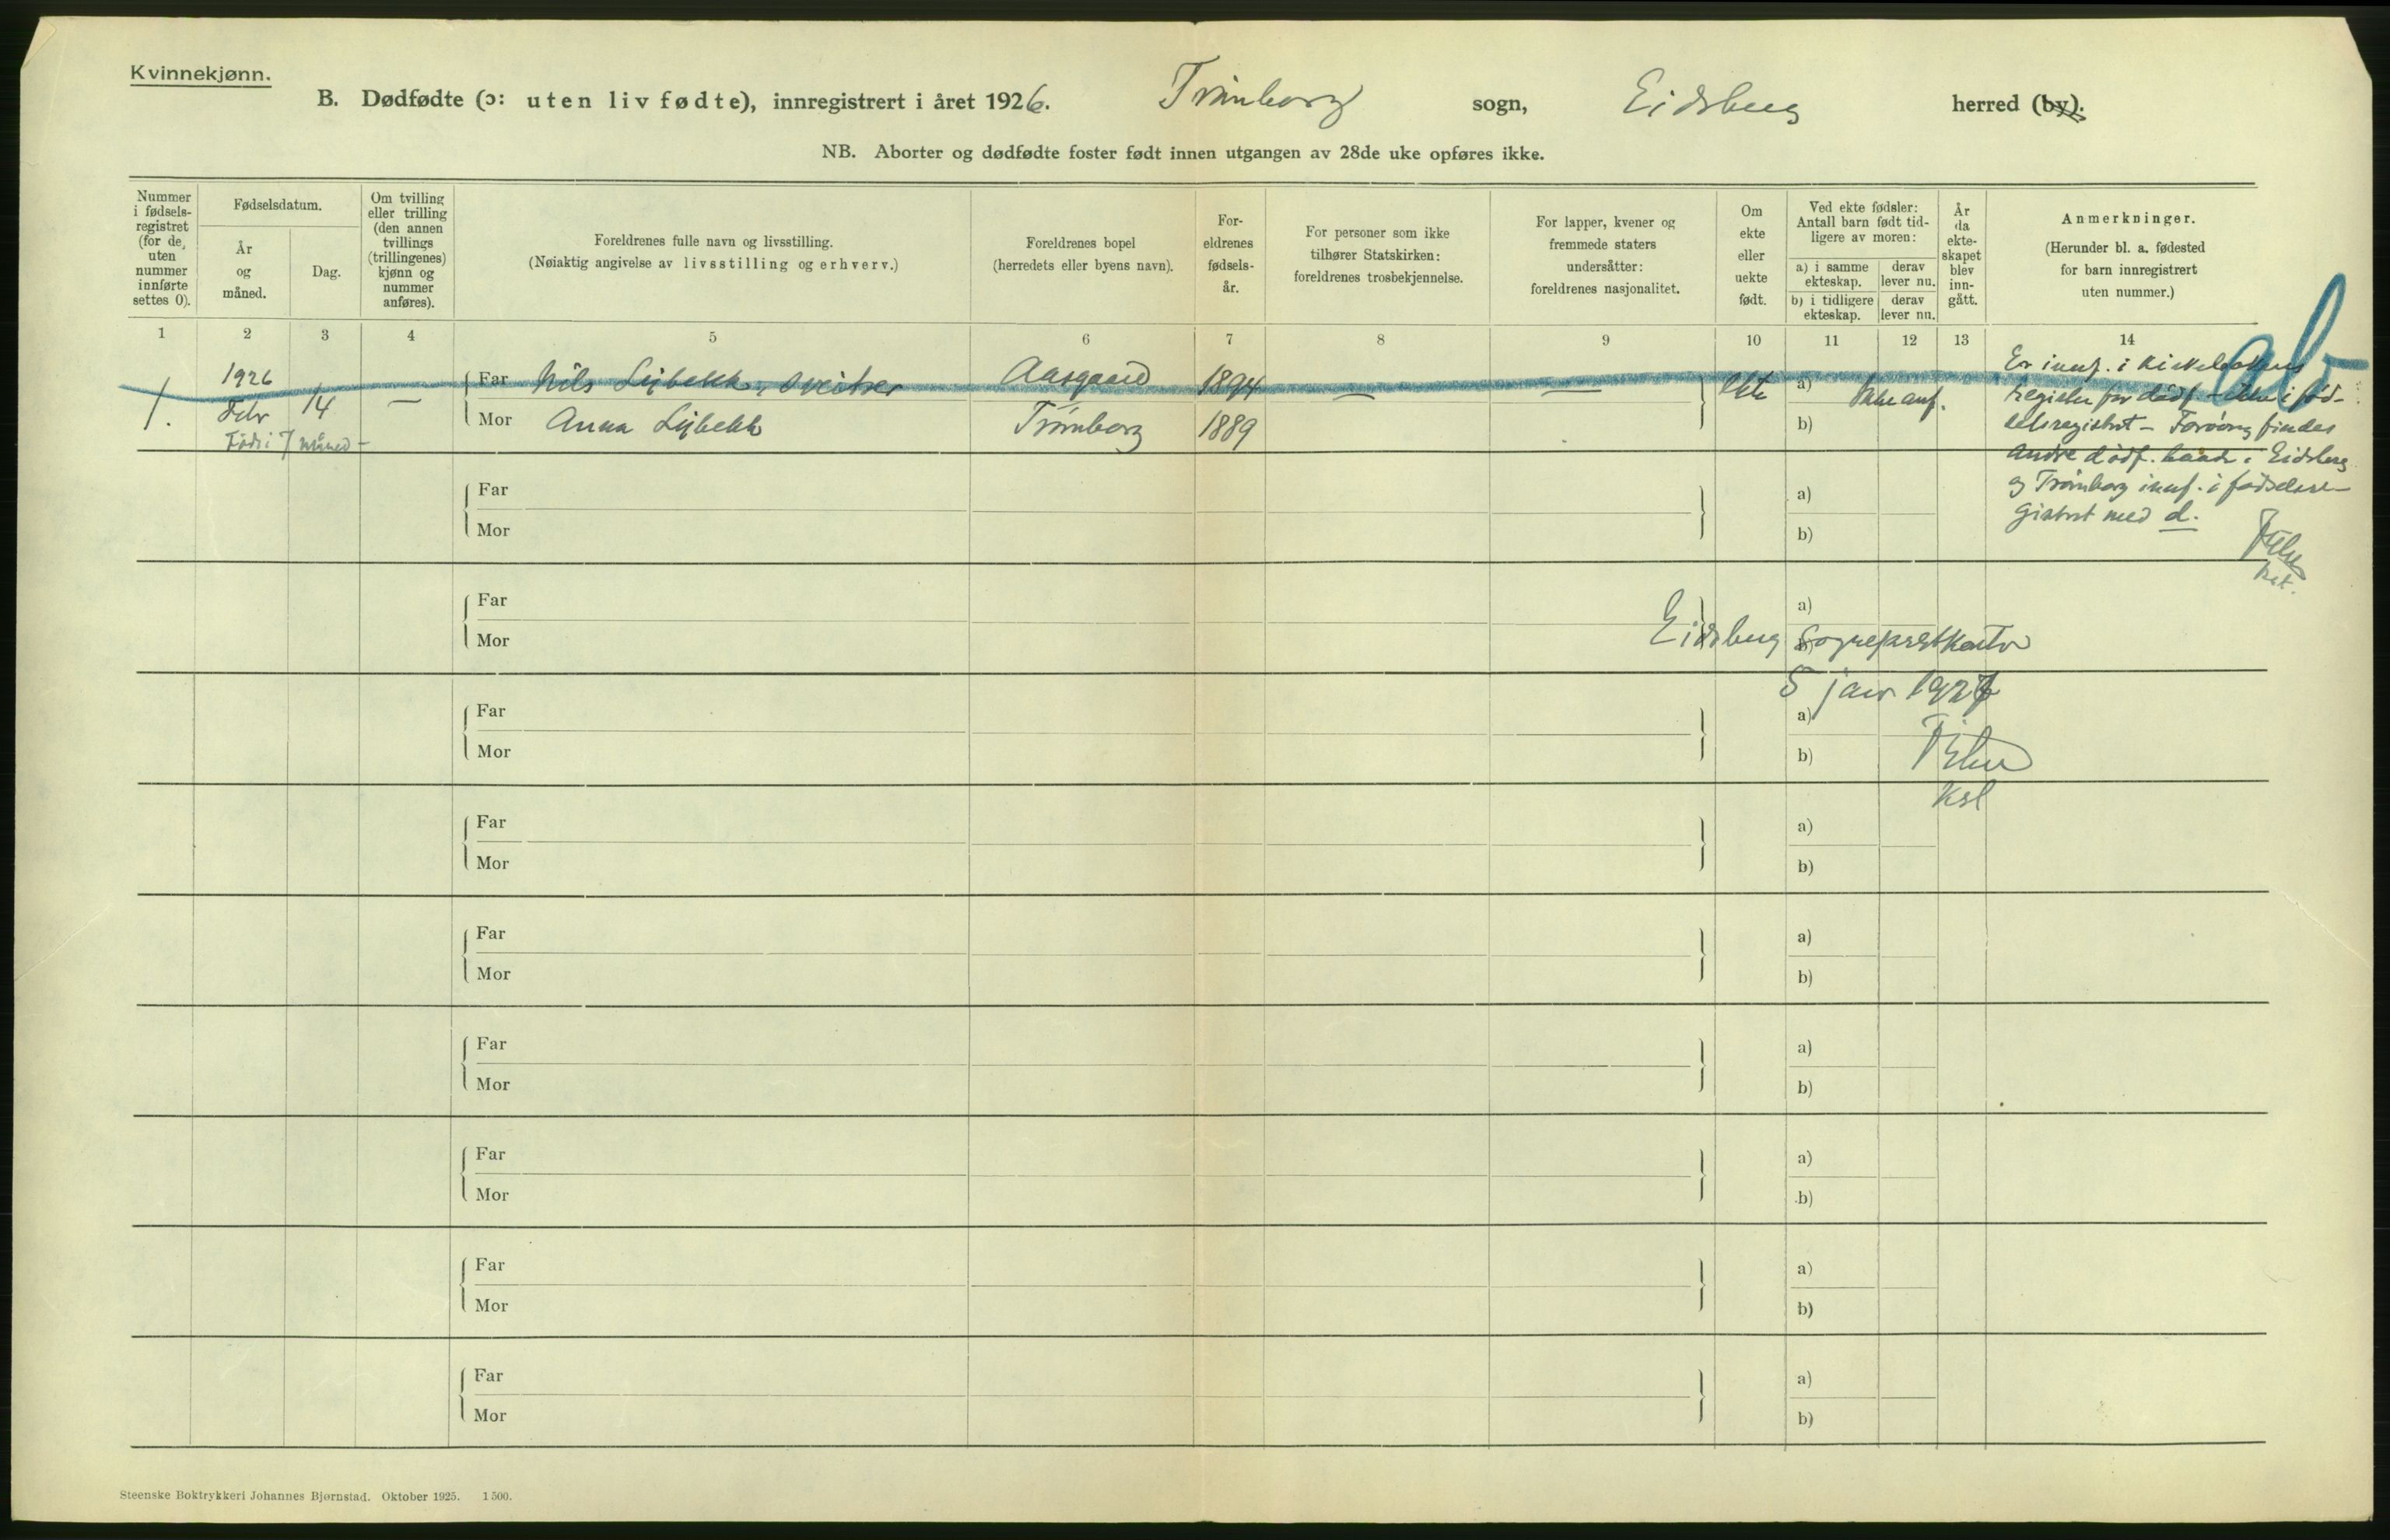 Kvinnekjønn.
B. Dødfødte (ɔ: uten liv fødte), innregistrert i året 1926. Trømborg sogn, Eidsberg herred (by).
NB. Aborter og dødfødte foster født innen utgangen av 28de uke opføres ikke.
Nummer i fødsels-registret (for de uten nummer innførte settes 0).
Fødselsdatum.
År og måned.
Dag.
Om tvilling eller trilling (den annen tvillings (trillingenes) kjønn og nummer anføres).
Foreldrenes fulle navn og livsstilling.
(Nøiaktig angivelse av livsstilling og erhverv.)
Foreldrenes bopel
(herredets eller byens navn).
For-eldrenes fødsels-år.
For personer som ikke tilhører Statskirken: foreldrenes trosbekjennelse.
For lapper, kvener og fremmede staters undersåtter: foreldrenes nasjonalitet.
Om ekte eller uekte født.
Ved ekte fødsler: Antall barn født tid-ligere av moren:
a) i samme ekteskap. derav lever nu.
b) i tidligere ekteskap. derav lever nu.
År da ekte-skapet blev inn-gått.
Anmerkninger.
(Herunder bl. a. fødested for barn innregistrert uten nummer.)
1 2 3 4 5 6 7 8 9 10 11 12 13 14
1. 1926 Febr 14 — Far Nils Lybekk, sveitser Aasgaard 1894 — — Ekte a) Ikke anf.
Født i 7 måned – Mor Anna Lybekk Trømborg 1889 b)
Er innf. i Kirkebokens
register for dødf – ikke i fød-
selsregistret – Forøvrig findes
andre dødf. baade i Eidsberg
og Trømborg innf. i fødselsre-
gistret med d.
Far a)
Mor b)
Far a)
Mor
Eidsberg Sogneprestkontor
5 jan 1927
Far a)
Mor b)
Ksl
Far a)
Mor b)
Far a)
Mor b)
Far a)
Mor b)
Far a)
Mor b)
Far a)
Mor b)
Far a)
Mor b)
Steenske Boktrykkeri Johannes Bjørnstad. Oktober 1925. 1500.